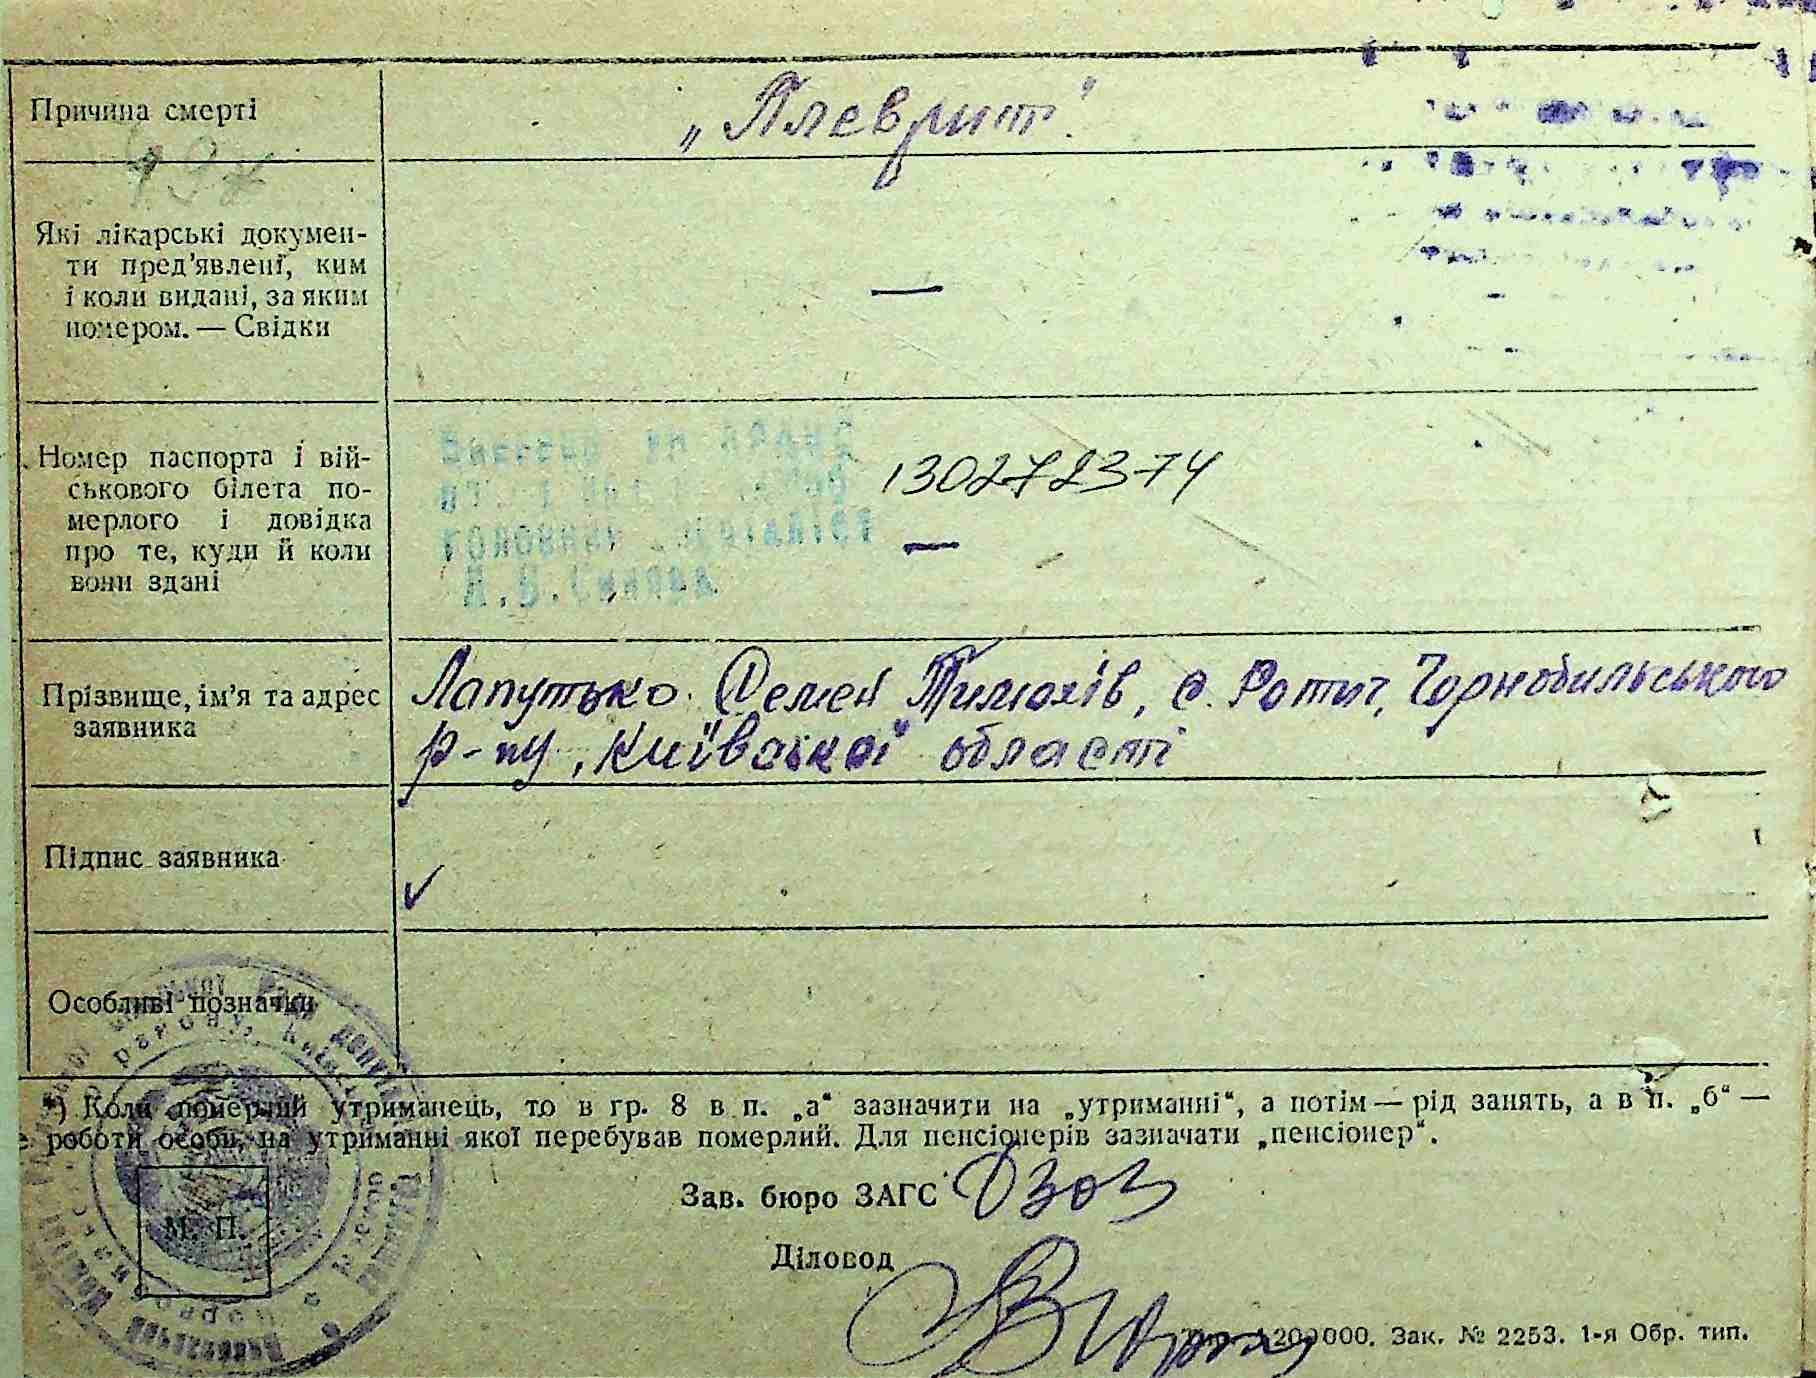 Причина смерті
„Плеврит".
Які лікарські докумен-
ти пред'явлені, ким
і коли видані, за яким
номером. — Свідки
—
Номер паспорта і вій-
ськового білета по-
мерлого і довідка
про те, куди й коли
вони здані
130272374
—
Прізвище, ім'я та адрес
заявника
Лапутько Демей Тимохів, с. Ротич, Чорнобильського
р-ну, Київської області
Підпис заявника
✓
Особливі позначки
*) Коли померлий утриманець, то в гр. 8 в п. „а“ зазначити на „утриманні“, а потім — рід занять, а в п. „б“ —
е роботи особи, на утриманні якої перебував померлий. Для пенсіонерів зазначати „пенсіонер“.
М. П.
Зав. бюро ЗАГС
Діловод
200 000. Зак. № 2253. 1-я Обр. тип.